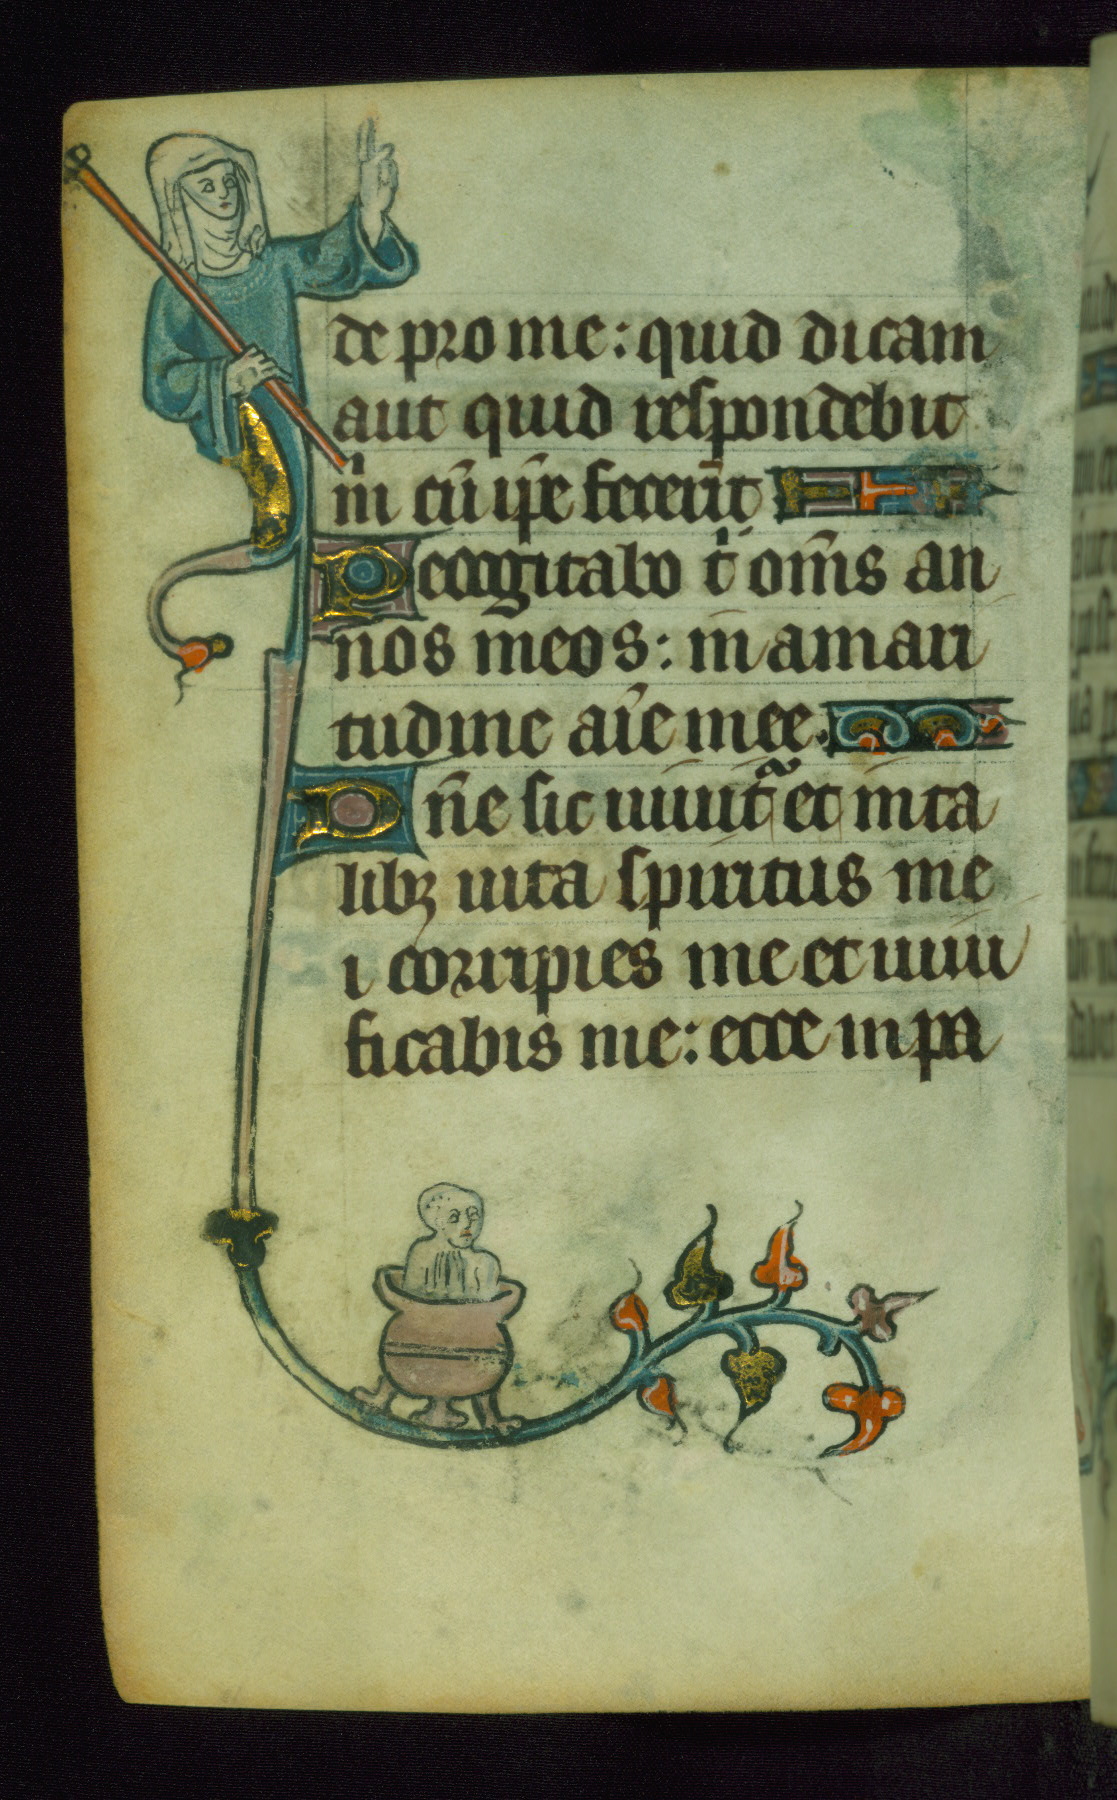 de pro me: quid dicam
aut quid respondebit
m̄ cū ip̄e fecerīt
Recogitabo t̄ om̄s an
nos meos: in amari
tudine aīe mee.
Dn̄e sic uiuit̄ᵃ et in ta
libꝫ uita spiritus me
i corripies me et uiui
ficabis me: ecce in pa